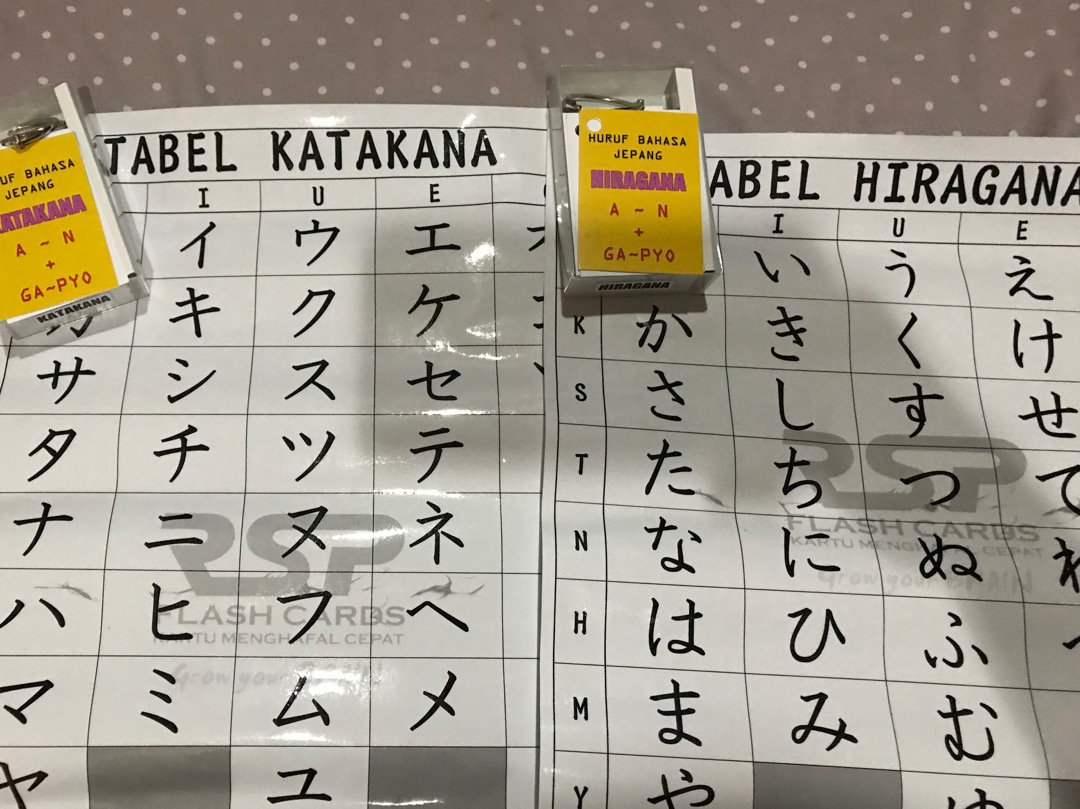 TABEL KATAKANA
I U E
イ ウ エ
キ ク ケ
サ シ ス セ
タ チ ツ テ
ナ ニ ヌ ネ
ハ ヒ フ ヘ
マ ミ ム メ
ヤ ユ
RSP
FLASH CARDS
KARTU MENGHAFAL CEPAT
Grow your
BAHASA
JEPANG
KATAKANA
A ~ N
+
GA~PYO
KATAKANA
HURUF BAHASA
JEPANG
HIRAGANA
A ~ N
+
GA~PYO
HIRAGANA
TABEL HIRAGANA
I U E
い う え
K か き く け
S さ し す せ
T た ち つ て
N な に ぬ
H は ひ ふ
M ま み む
Y や
RSP
FLASH CARDS
KARTU MENGHAFAL CEPAT
Grow your BRAIN